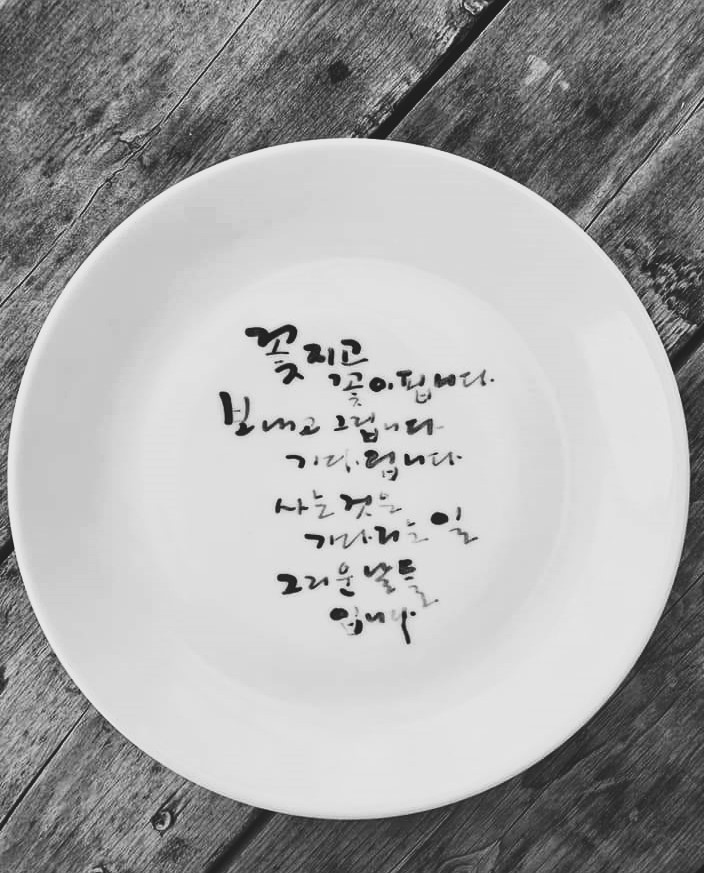 꽃 지고
꽃이 핍니다.
보내고 그립니다
기다립니다
사는 것은
기다리는 일
그리운 날들
입니다.